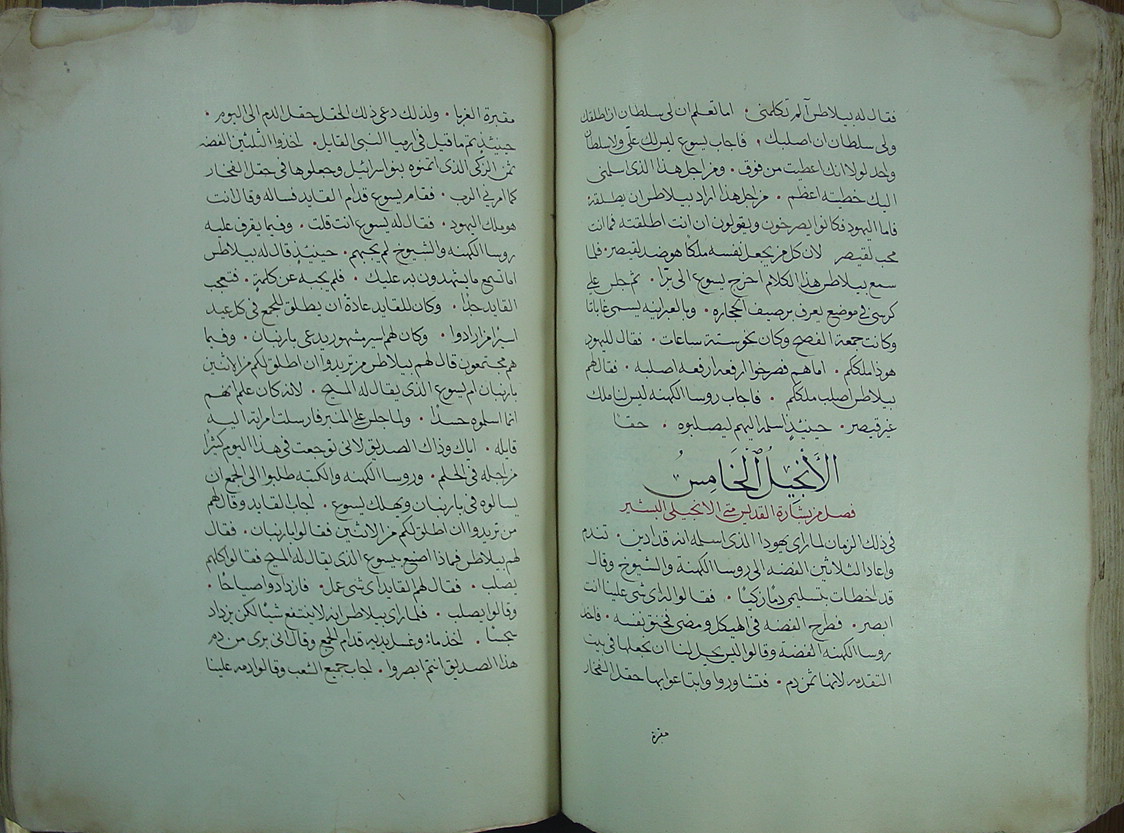 فقال له بيلاطس ألم تكلمني . اما تعلم ان لي سلطان ان اطلقك
ولي سلطان ان اصلبك . فاجاب يسوع ليس لك علي ولا سلطان
واحد لولا انك اعطيت من فوق . ومن اجل هذا الذي سلمني
اليك خطيته اعظم . من اجل هذا اراد بيلاطس ان يطلقه
فاما اليهود فكانوا يصرخون ويقولون ان انت اطلقته فما انت
محب لقيصر لان كل من يجعل نفسه ملكا هو ضد لقيصر . فلما
سمع بيلاطس هذا الكلام اخرج يسوع الى برا . ثم جلس على
كرسي في موضع يعرف برصيف الحجاره . وبالعبرانيه يسمى غاباثا
وكانت جمعة الفصح وكان نحو ستة ساعات . فقال لليهود
هوذا ملككم . اما هم فصرخوا ارفعه ارفعه اصلبه . فقال لهم
بيلاطس اصلب ملككم . فاجاب روسا الكهنه ليس لنا ملك
غير قيصر . حينيذ اسلمه اليهم ليصلبوه . حقا
الأنجيل الخامس
فصل من بشارة القديس متى الانجيلي البشير
في ذلك الزمان لما راى يهودا الذي اسلمه انه قد ادين . تندم
واعاد الثلاثين الفضه الى روسا الكهنة والشيوخ وقال
قد اخطات بتسليمي دما زكيا . فقالوا له اي شي علينا انت
ابصر . فطرح الفضه في الهيكل ومضى فخنق نفسه . فاخذ
روسا الكهنه الفضه وقالوا ليس يحل لنا ان نجعلها في بيت
التقدمه لانها ثمن دم . فتشاوروا وابتاعوا بها حقل الفخار
مقبرة
مقبرة الغربا . ولذلك دعي ذلك الحقل حقل الدم الى اليوم .
حينيذ تم ما قيل في ارميا النبي القايل . اخذوا الثلثين الفضه
ثمن الزكي الذي اثمنوه بنو اسرائيل وجعلوها في حقل الفخار
كما امرني الرب . فقام يسوع قدام القايد فساله وقال انت
هو ملك اليهود . فقال له يسوع انت قلت . وفيما يقرف عليه
روسا الكهنه والشيوخ لم يجبهم . حينيذ قال له بيلاطس
اما تسمع ما يشهدون به عليك . فلم يجبه عن كلمة . فتعجب
القايد جدا . وكان للقايد عادة ان يطلق للجمع في كل عيد
اسيرا من ارادوا . وكان لهم اسير مشهور يدعى باربان . وفيما
هم مجتمعون قال لهم بيلاطس من تريدوا ان اطلق لكم من الاثنين
باربان ام يسوع الذي يقال له المسيح . لانه كان علم انهم
انما اسلموه حسدا . ولما جلس على المنبر فارسلت امراته اليه
قايله . اياك وذاك الصديق لاني توجعت في هذا اليوم كثيرا
من اجله في الحلم . وروسا الكهنه والكتبه طلبوا الى الجمع ان
يسالوه في باربان ويهلك يسوع . اجاب القايد وقال لهم
من تريدوا ان اطلق لكم من الاثنين فقالوا باربان . فقال
لهم بيلاطس فماذا اصنع بيسوع الذي يقال له المسيح فقالوا كلهم
يصلب . فقال لهم القايد اي شي عمل . فازدادوا صياحا .
وقالوا يصلب . فلما راى بيلاطس انه لا ينتفع شيئا لكن يزداد
سجسا . اخذ ماء وغسل يديه قدام الجمع وقال انى بري من دم
هذا الصديق انتم ابصروا . اجاب جميع الشعب وقالوا دمه علينا